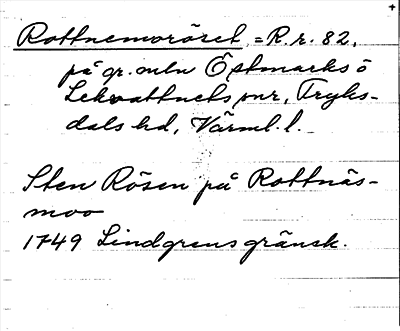 Rottnemoröset, = R.r. 82,
på gr. mln Östmarks o
Lekvattnets snr, Fryks-
dals hd, Värml. l.
Sten Rösen på Rottnäs-
moo
1749 Lindgrens gränsk.